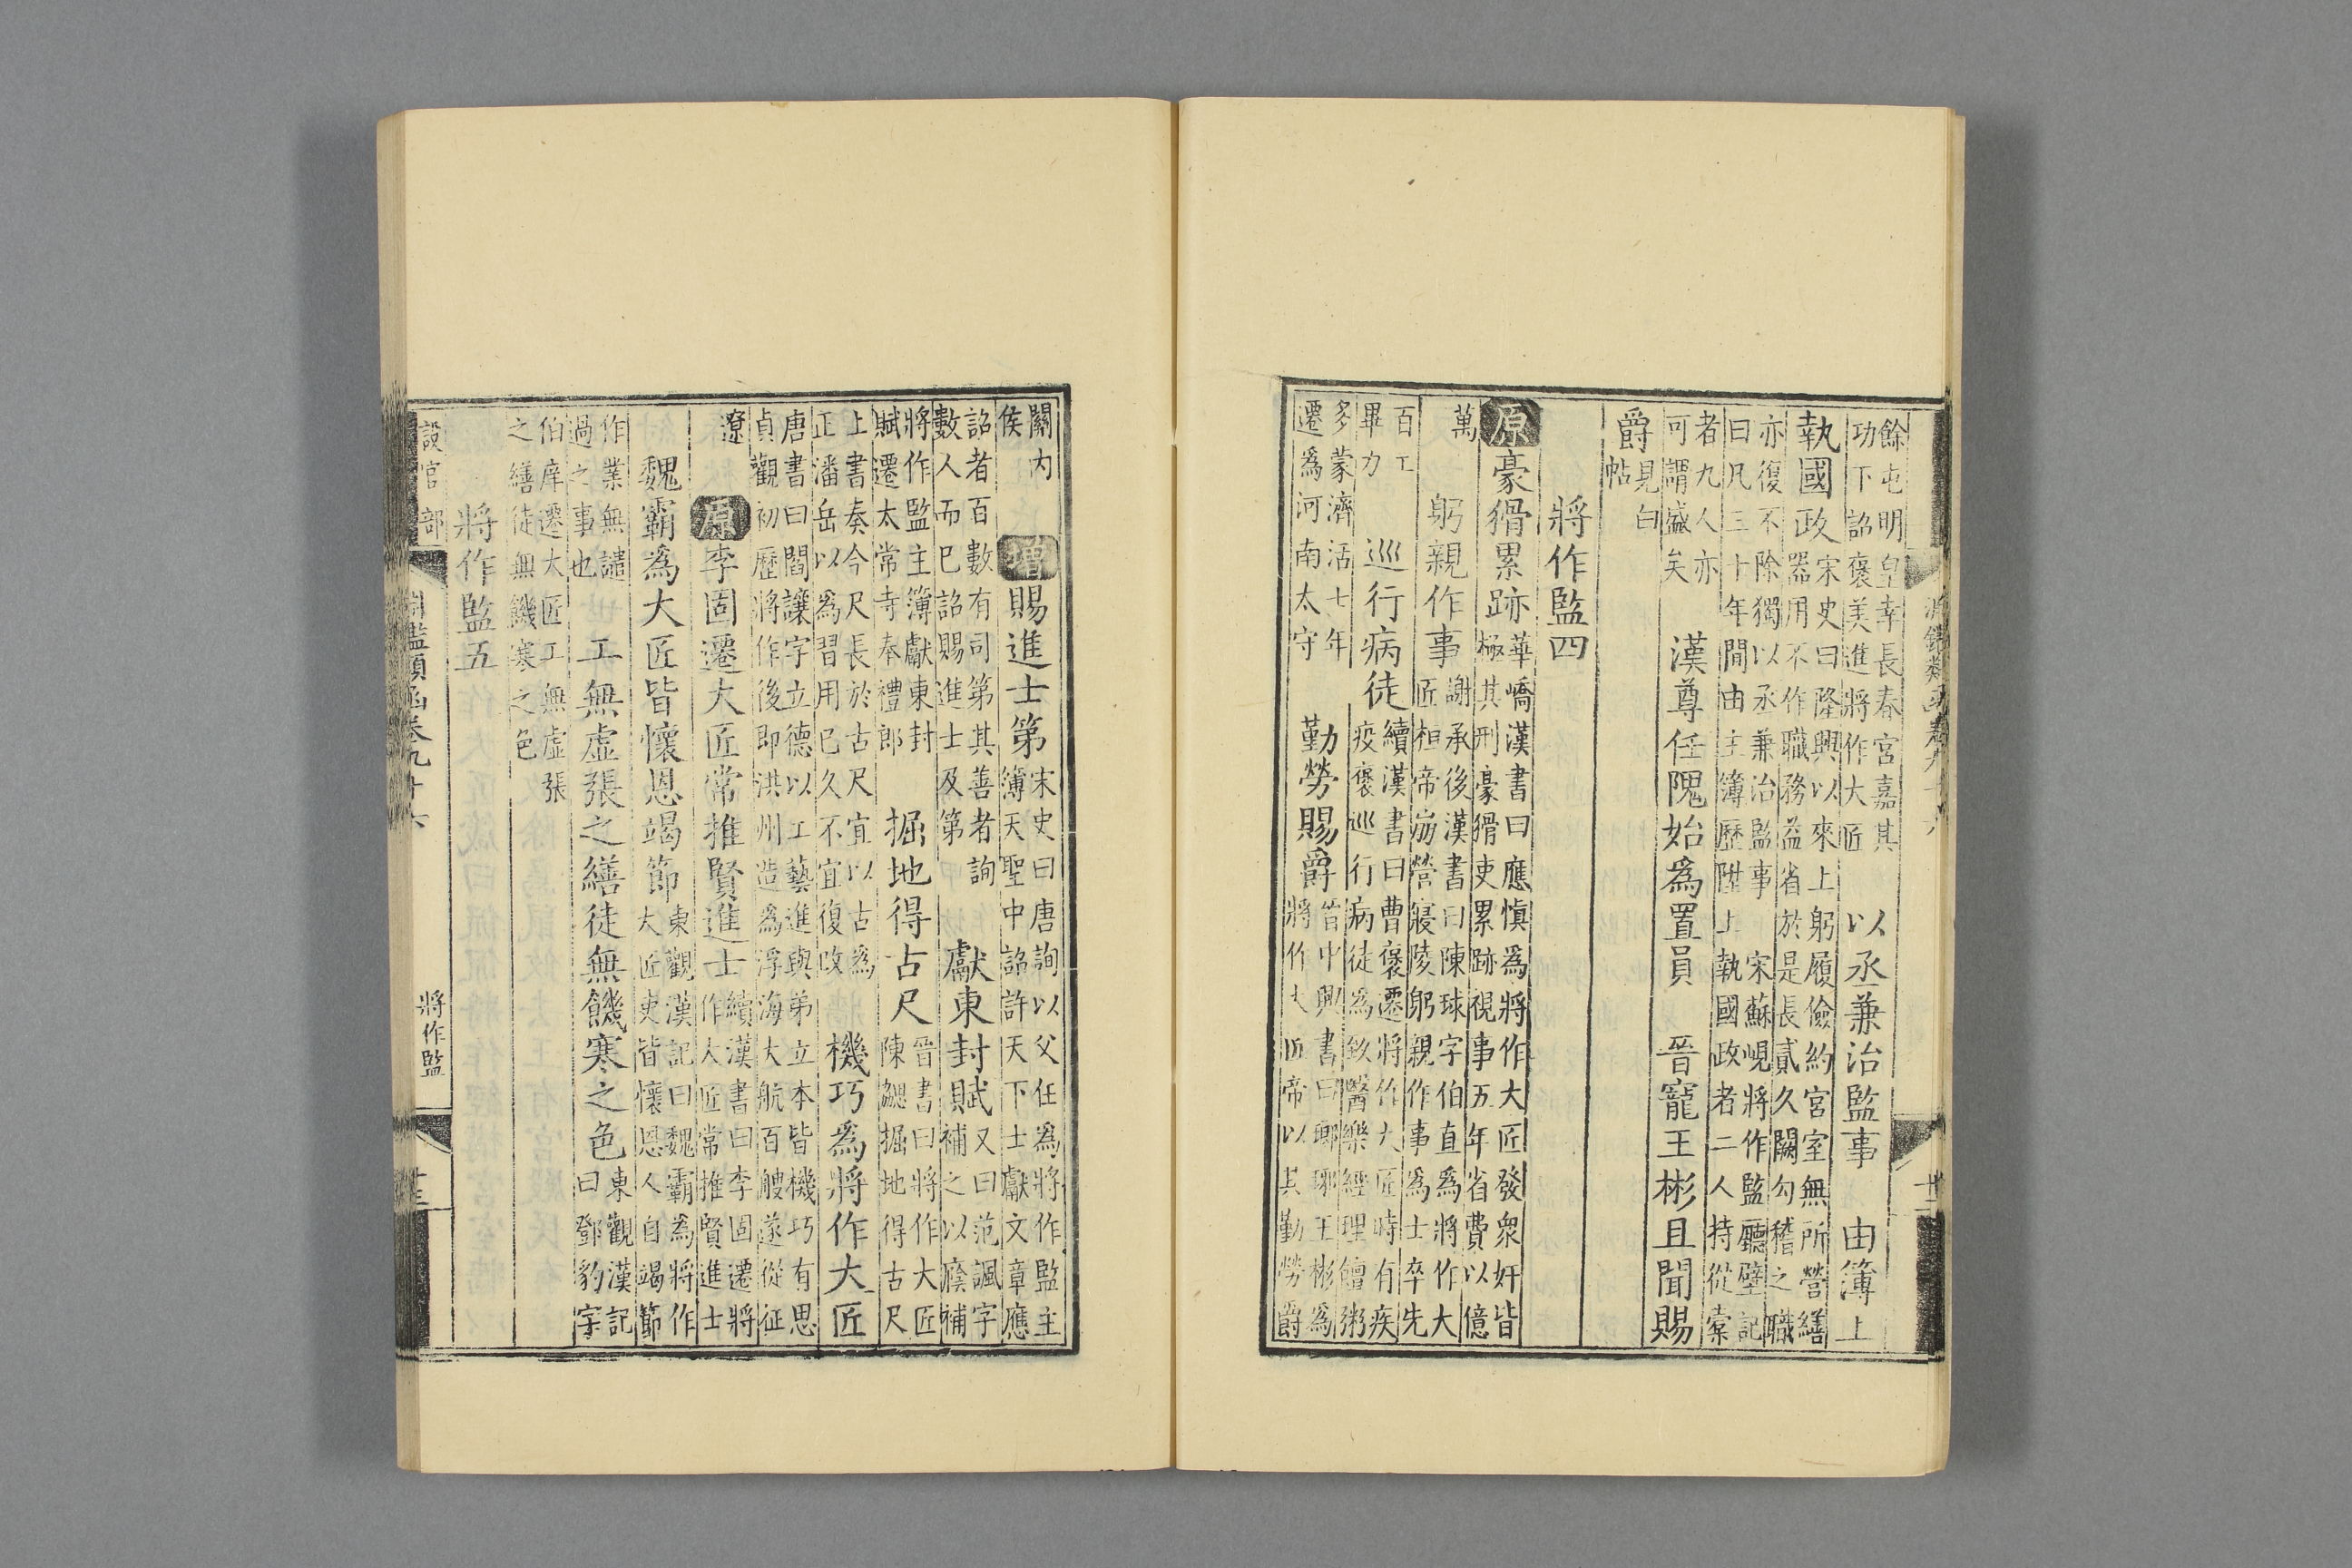 淵鑑類函卷九十六　十二
餘屯明皇幸長春宮嘉其
功下詔褒美進將作大匠
以丞兼治監事　由簿上
執國政
宋史曰隆興以來上躬履儉約宮室無所營繕
器用不作職務益省於是長貳久闕勾稽之職
亦復不除獨以丞兼治監事　宋蘇峴將作監廳壁記
曰凡三十年間由主簿歷陞上執國政者二人持從槖
者九人亦
可謂盛矣
漢尊任隗始爲置員　晉寵王彬且聞賜
爵
見白
帖
將作監四
原豪猾累跡
華嶠漢書曰應愼爲將作大匠發衆奸皆
極其刑豪猾吏累跡視事五年省費以億
萬
躬親作事
謝承後漢書曰陳球字伯直爲將作大
匠桓帝崩營寢陵躬親作事爲士卒先
百工
畢力
巡行病徒
續漢書曰曹褒遷將作大匠時有疾
疫褒巡行病徒爲致醫藥經理饘粥
多蒙濟活七年
遷爲河南太守
勤勞賜爵
晉中興書曰瑯琊王彬爲
將作大匠帝以其勤勞爵
關内
侯
增賜進士第
宋史曰唐詢以父任爲將作監主
簿天聖中詔許天下士獻文章應
詔者百數有司第其善者詢
數人而已詔賜進士及第
獻東封賦
又曰范諷字
補之以廕補
將作監主簿獻東封
賦遷太常寺奉禮郎
掘地得古尺
晉書曰將作大匠
陳勰掘地得古尺
上書奏今尺長於古尺宜以古爲
正潘岳以爲習用已久不宜復改
機巧爲將作大匠
唐書曰閻讓字立德以工藝進與弟立本皆機巧有思
貞觀初歷將作後即洪州造爲浮海大航百艘遂從征
遼
原李固遷大匠常推賢進士
續漢書曰李固遷將
作大匠常推賢進士
魏霸爲大匠皆懷恩竭節
東觀漢記曰魏霸爲將作
大匠吏皆懷恩人自竭節
作業無譴
過之事也
工無虛張之繕徒無饑寒之色
東觀漢記
曰鄧豹字
伯庠遷大匠工無虛張
之繕徒無饑寒之色
將作監五
設官部　淵鑑類函卷九十六　將作監　十三